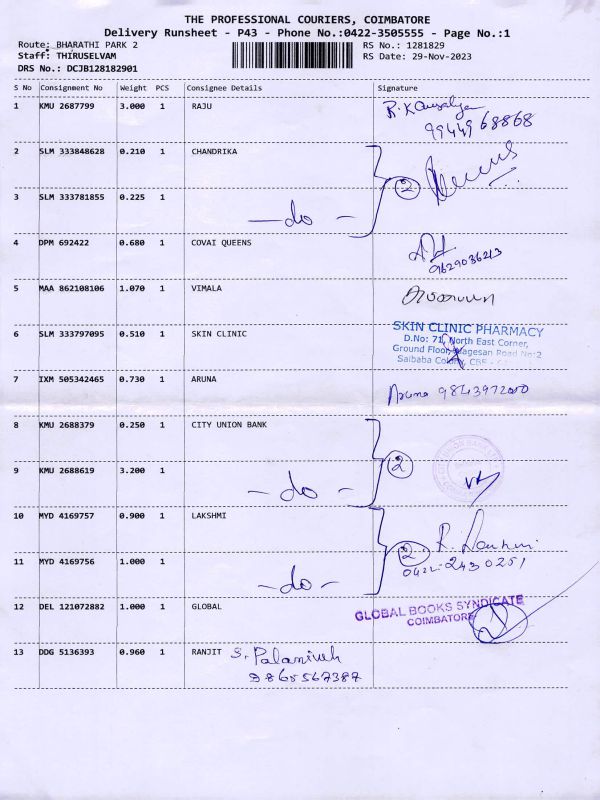 THE PROFESSIONAL COURIERS, COIMBATORE
Delivery Runsheet - P43 - Phone No.:0422-3505555 - Page No.:1
Route: BHARATHI PARK 2 RS No.: 1281829
Staff: THIRUSELVAM RS Date: 29-Nov-2023
DRS No.: DCJB128182901
S No Consignment No Weight PCS Consignee Details Signature
1 KMU 2687799 3.000 1 RAJU
9944968868
2 SLM 333848628 0.210 1 CHANDRIKA
2
3 SLM 333781855 0.225 1
— do —
4 DPM 692422 0.680 1 COVAI QUEENS
9629036213
5 MAA 862108106 1.070 1 VIMALA
6 SLM 333797095 0.510 1 SKIN CLINIC
SKIN CLINIC PHARMACY
D.No: 71, North East Corner,
Ground Floor, Nagesan Road No:2
Saibaba Colony, CBE
7 IXM 505342465 0.730 1 ARUNA Aruna
8 KMU 2688379 0.250 1 CITY UNION BANK
2
9 KMU 2688619 3.200 1
— do —
10 MYD 4169757 0.900 1 LAKSHMI
2
11 MYD 4169756 1.000 1
0422-2430251
— do —
12 DEL 121072882 1.000 1 GLOBAL
GLOBAL BOOKS SYNDICATE
COIMBATORE
13 DDG 5136393 0.960 1 RANJIT S. Palanivel
9865567387